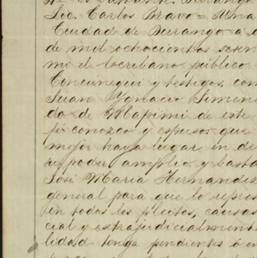 Lic. Carlos Bravo = Una
Ciudad de Durango a
de mil ochocientos sesen
mi el escribano público
Cincunegui y testigos, com
Juan Ygnacio Jimene
do de Mapimi de este
fé conozco y espuso que
mejor haya lugar en de
su poder amplio y basta
José Maria Hernandez
general para que lo repres
en todos los pleitos, causas
cial y extrajudicialmente
lidad tenga pendientes ó en